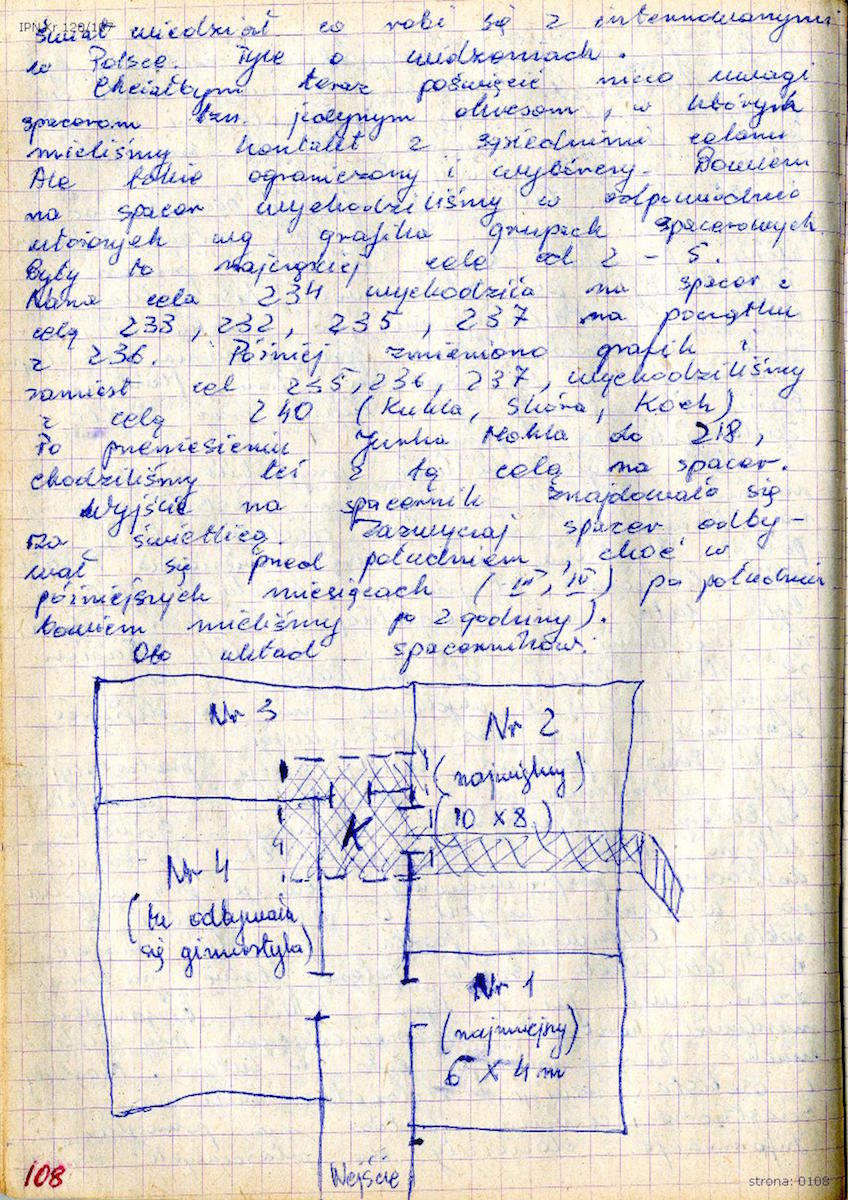 świat wiedział co robi się z internowanymi
w Polsce. Tyle o widzeniach.
Chciałbym teraz poświęcić nieco uwagi
spacerom tzn. jedynym okresom, w których
mieliśmy kontakt z sąsiednimi celami
Ale także ograniczony i wybiórczy. Bowiem
na spacer wychodziliśmy w odpowiednio
ułożonych wg grafika grupach spacerowych
Były to najczęściej cele od 2 - 5.
Nasza cela 234 wychodziła na spacer z
celą 233, 232, 235, 237 na początku
z 236. Później zmieniono grafik i
zamiast cel 235, 236, 237, wychodziliśmy
z celą 240 (Kukla, Skóra, Koch)
Po przeniesieniu Jurka do 218,
chodziliśmy też z tą celą na spacer.
Wyjście na spacernik znajdowało się
za świetlicą. Zazwyczaj spacer odby-
wał się przed południem, choć w
późniejszych miesiącach (III, IV) po południu
bowiem mieliśmy po 2 godziny).
Oto układ spacerników:
Nr 3
Nr 2
(największy)
(10 x 8)
K
Nr 4
(tu odbywała
się gimnastyka)
Nr 1
(najmniejszy)
6 x 4 m
Wejście
108
strona: 0108